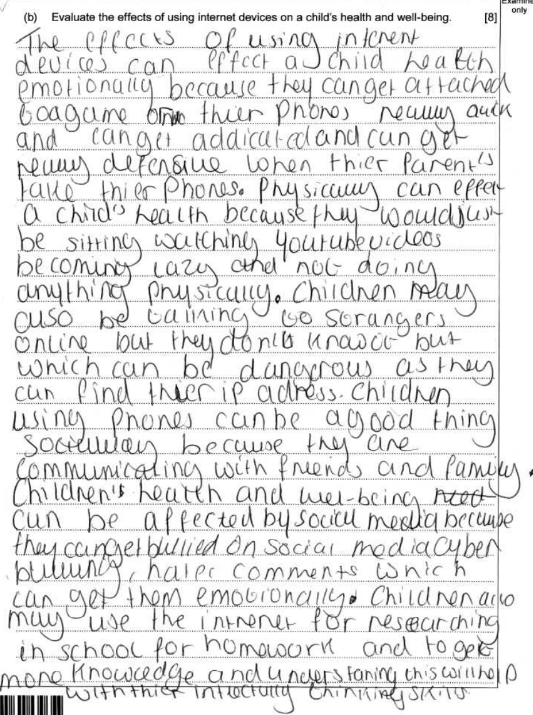 Examine
only
(b) Evaluate the effects of using internet devices on a child's health and well-being. [8]
The effects of using intrent
devices can effect a child health
emotionally because they can get attached
to a game or thier phones really quick
and can get addicated and can get
really defensive when thier parent's
take thier phones. Physically can effect
a child's health because they would just
be sitting watching youtube videos
becoming lazy and not doing
anything physically. Children may
also be talking to sorangers
online but they don't know it but
which can be dangerous as they
can find thier ip adress. Children
using phones can be a good thing
because they are
communicating with friends and family.
Children's health and well-being
can be affected by social media because
they can get bullied on social media cyber
bulling, hater comments which
can get them emotionally. Children also
may use the intrenet for researching
in school for homework and to get
more knowledge and understaning this will help
with thier intlectully thinking skills